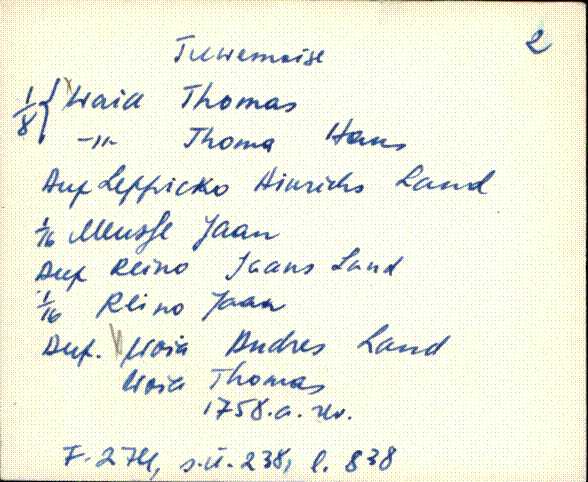 2
1/8 { Waid Thomas
-"- Thoma Hans
Auf Leppicko Hinrichs Land
1/16 Musse Jaan
Auf Reino Jaans Land
1/16 Reino Jaan
Auf. Andres Land
Thomas
1758.a.
F. 274, s.ü. 238, l. 838